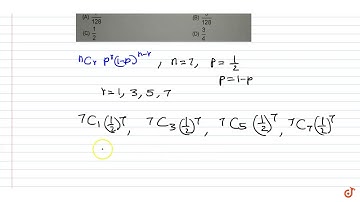 (A) /128 (B) /128
(C) 1/2 (D) 3/4
nCr p^r (1-p)^n-r , n=7, p = 1/2
p=1-p
r=1, 3, 5, 7
7C1(1/2)^7 , 7C3(1/2)^7 , 7C5 (1/2)^7 , 7C7(1/2)^7